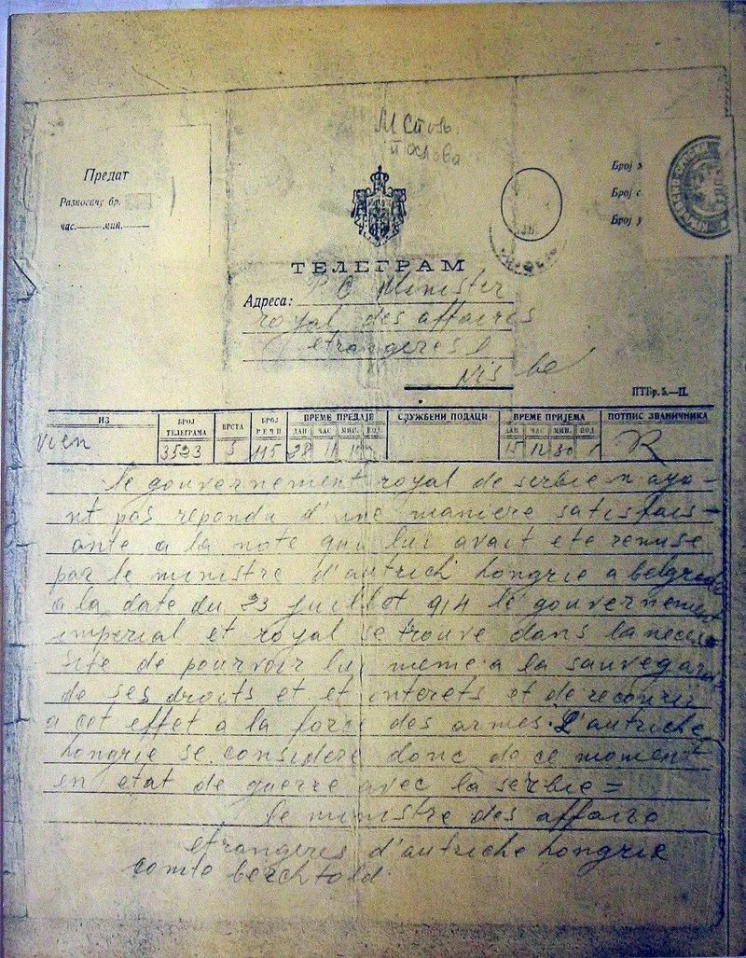 М ст. дѣл
послова
Предат
Разносачу бр.
час. мин.
Број
Број с
Број
ТЕЛЕГРАМ
Адреса:
Minister
royal des affaires
etrangeres
Nis be
ПТБр. 5.—II.
ИЗ
БРОЈ ТЕЛЕГРАМА
ВРСТА
БРОЈ РЕЧИ
ВРЕМЕ ПРЕДАЈЕ
СЛУЖБЕНИ ПОДАЦИ
ВРЕМЕ ПРИЈЕМА
ПОТПИС ЗВАНИЧНИКА
ДАН ЧАС МИН. ПОД.
ДАН ЧАС МИН. ПОД
vien 3523 5 115 28 11 15 12 30 R
le gouvernement royal de serbie n aya-
nt pas repondu d'une maniere satisfais-
ante a la note qui lui avait ete remise
par le ministre d'autrich hongrie a belgrade
a la date du 23 juillet 914 le gouvernement
imperial et royal se trouve dans la neces
site de pourvoir lui meme a la sauvegard
de ses droits et et interets et de recourir
a cet effet a la force des armes. L'autriche
hongrie se considere donc de ce moment
en etat de guerre avec la serbie =
le ministre des affaire
etrangeres d'autriche hongrie
comte berchtold